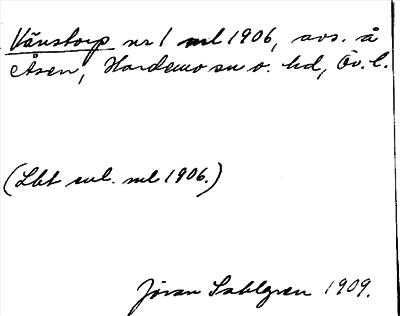 Vänstorp nr 1 ml 1906, avs. å
Åsen, Hardemo sn o. hd, Öv. l.
(Lbt enl. ml 1906.)
Jöran Sahlgren 1909.